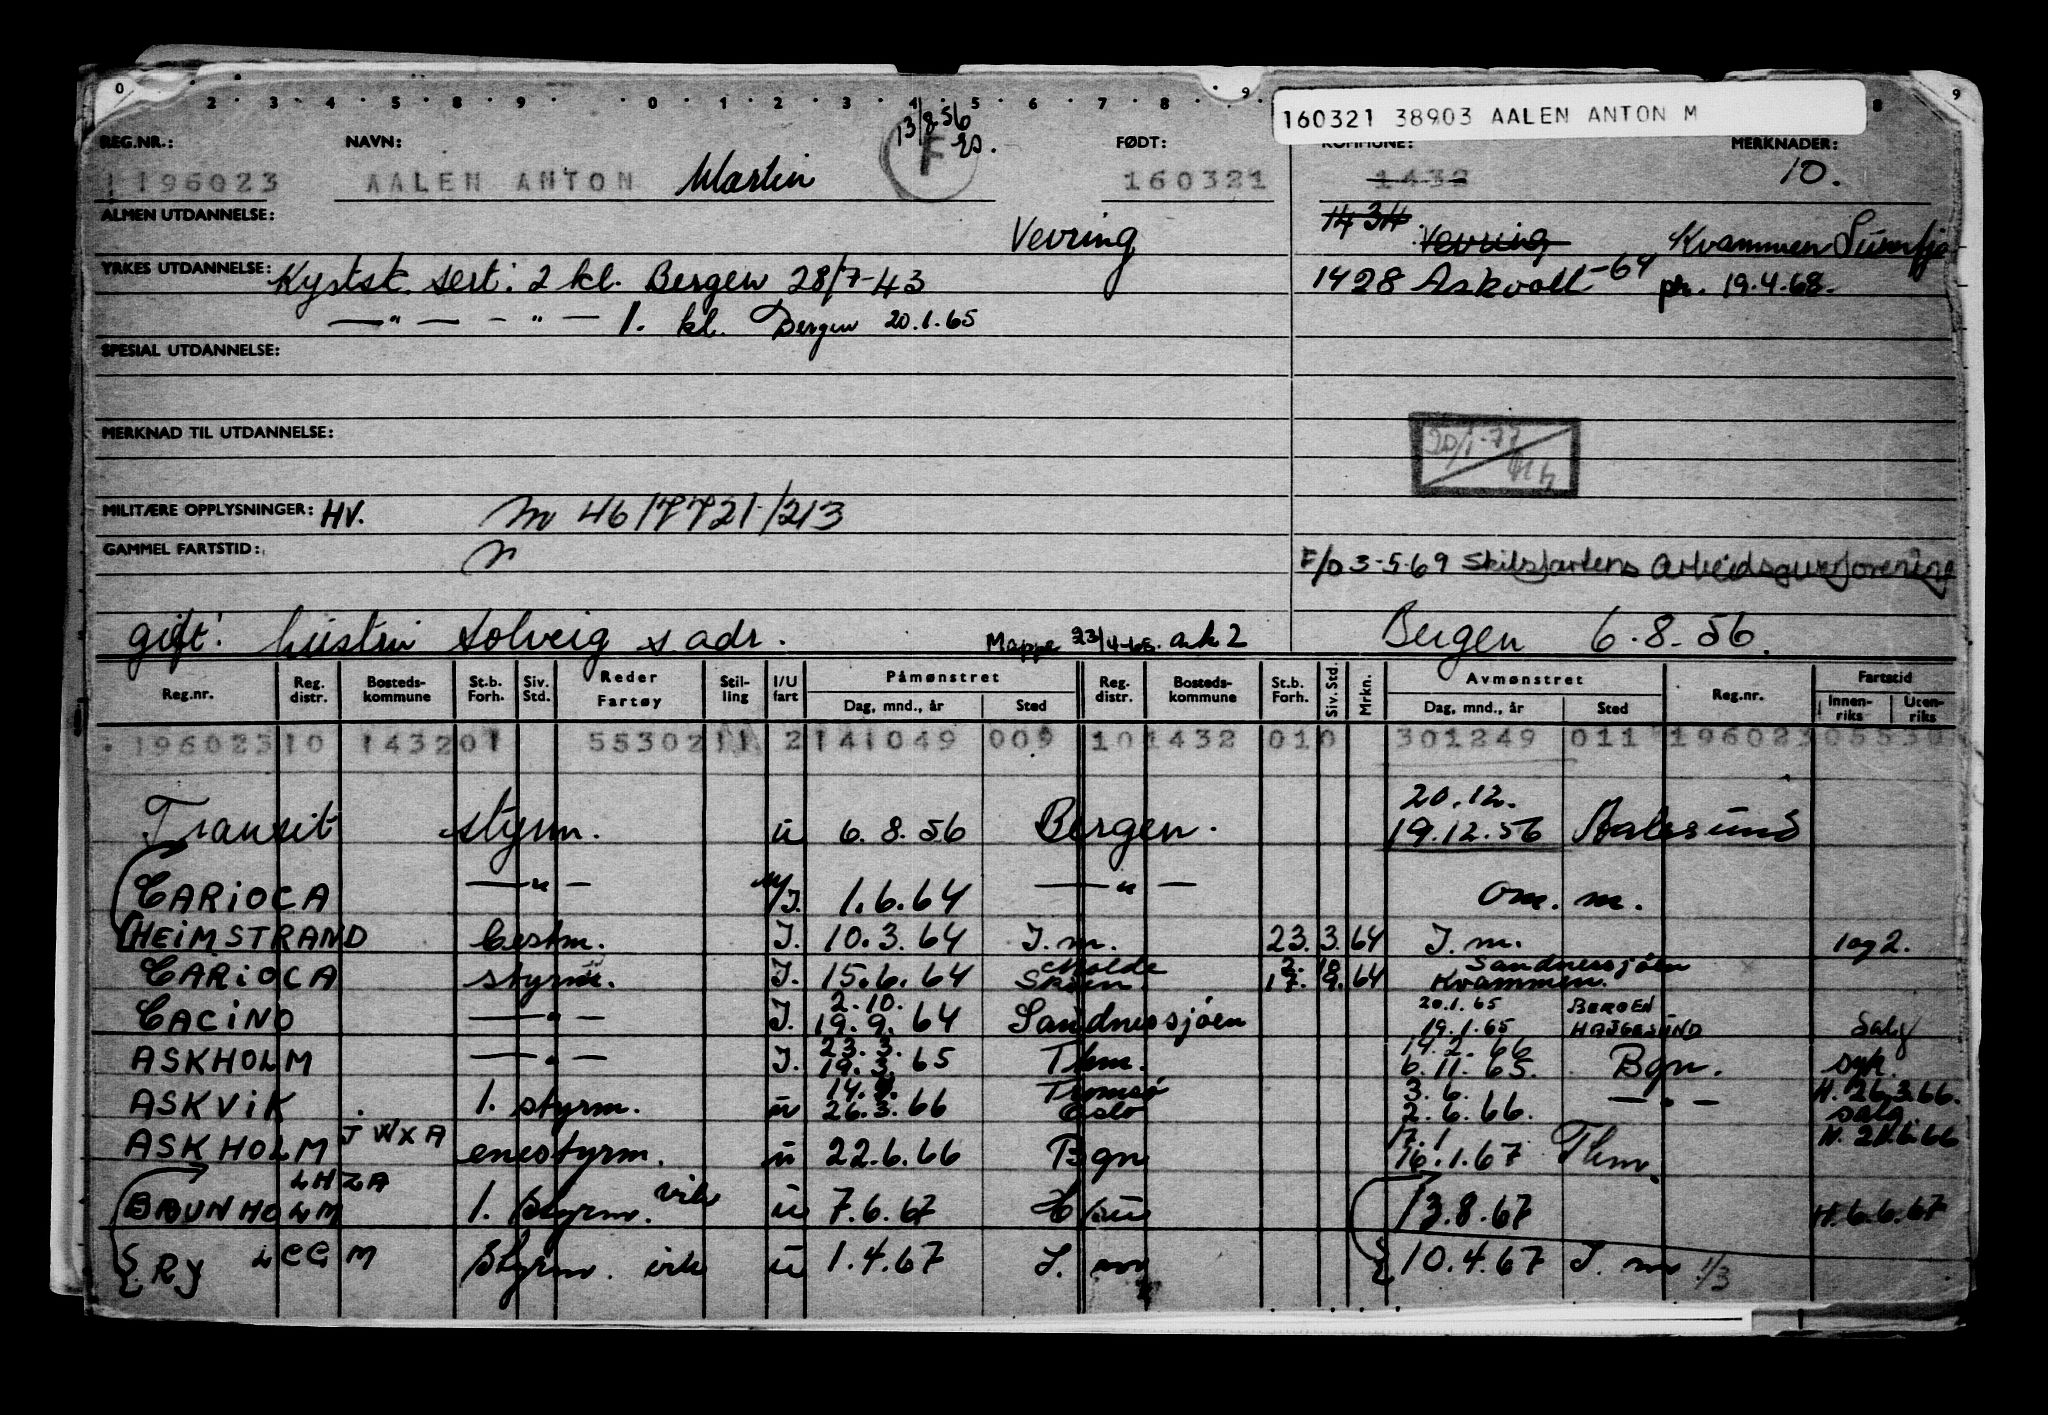 160321 38903 AALEN ANTON M
13/8 56
REG.NR.: NAVN: F FØDT: KOMMUNE: MERKNADER:
1196023 AALEN ANTON Martin 160321 1432 10.
ALMEN UTDANNELSE: Vevring 1434 Vevring Kvammen Sunnfj
YRKES UTDANNELSE: Kystsk. sert. 2 kl. Bergen 28/7-43 1428 Askvoll -64 pr. 19.4.68.
— " — - " — 1. kl. Bergen 20.1.65
SPESIAL UTDANNELSE:
MERKNAD TIL UTDANNELSE: 20/1-77
MILITÆRE OPPLYSNINGER: HV. M 46/7721/213
GAMMEL FARTSTID: F/D 3-5-69 Skibsfartens Arbeidsgiverforening
gift: hustru Solveig s. adr. Mappe 23/4-65. ark 2 Bergen 6.8.56.
Reg.nr. Reg. distr. Bosteds-kommune St.b. Forh. Siv. Std. Reder Fartøy Stil-ling I/U fart Påmønstret Dag, mnd., år Sted Reg. distr. Bosteds-kommune St.b. Forh. Siv. Std. Mrkn. Avmønstret Dag, mnd., år Sted Reg.nr. Fartstid Innen-riks Uten-riks
196023 10 1432 01 55302 11 2 141049 009 10 1432 010 301249 011 196023 05530
20.12.
Transit styrm. u 6.8.56 Bergen. 19.12.56 Aalesund
CARIOCA — " — I. 1.6.64 — " — om. m.
HEIMSTRAND bestm. I. 10.3.64 I. m. 23.3.64 I. m. 1 og 2.
Molde 2. 10 Sandnessjøen
CARIOCA styrm. I. 15.6.64 17. 9. 64 Kvammen.
2.10. 20.1.65 BERGEN
CACINO — " — I. 19.9.64 Sandnessjøen 19.1.65 HAUGESUND Salg
23.3. 14.2.66
ASKHOLM — " — I. 19.3.65 Thm. 6.11.65. Bgn. syk.
14. Tromsø 3.6. H. 26.3.66.
ASKVIK 1. styrm. u 26.3.66 Oslo 2.6.66. — " — salg
JWXA 17.1 H. 21.6.66
ASKHOLM enestyrm. u 22.6.66 Bgn 16.1.67 Thm.
LHZA
BRUNHOLM 1. styrm. vik u 7.6.67 13.8.67 H. 6.6.67
RY LCGM styrm. vik u 1.4.67 I. m 10.4.67 I. m 1/3